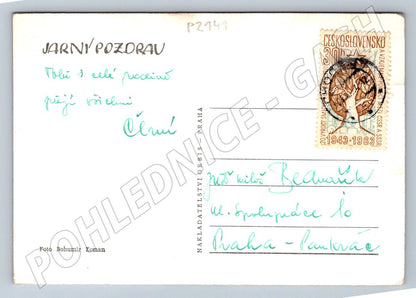 P2141
JARNÝ POZDRAV
Tobě i celé rodině
přejí všichni
Černí
ČESKOSLOVENSKO
1943-1963
NAKLADATELSTVÍ ORBIS - PRAHA
Miloš Bednařík
ul. Spolupráce 10
Praha - Pankrác
Foto Bohumír Koman
POHLEDNICE - GASH